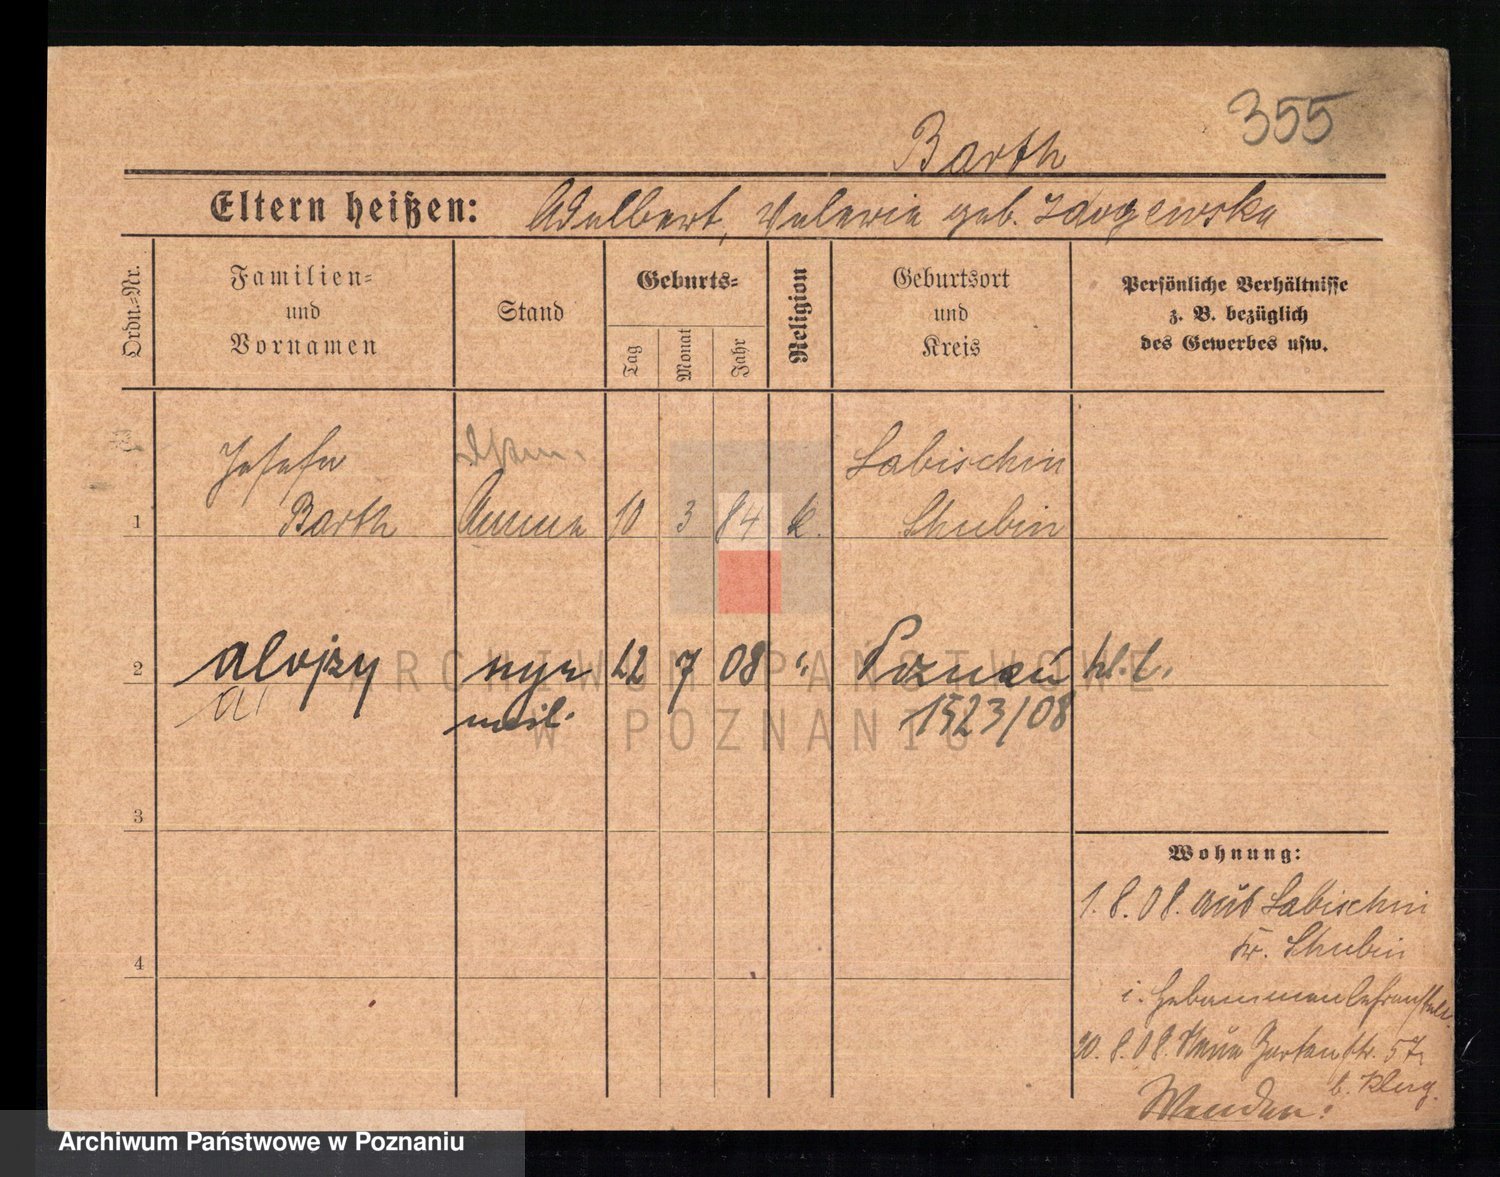 355
Barth
Eltern heißen: Adalbert, Valerie geb.
Ordn.-Nr.
Familien-
und
Vornamen
Stand
Geburts-
Tag
Monat
Jahr
Religion
Geburtsort
und
Kreis
Persönliche Verhältnisse
z. B. bezüglich
des Gewerbes usw.
Josefa
Labischin
1 Barth Amme 10 3 84 k. Schubin
2 Alojzy syn 22 7 08 " Poznań
1523/08
3
4
Wohnung:
1.8.08. aus Labischin
Kr. Schubin
i. Hebammenlehranstalt
20.8.08. Neue Gartenstr. 57
b.
Wenden!
ARCHIWUM PAŃSTWOWE
W POZNANIU
Archiwum Państwowe w Poznaniu